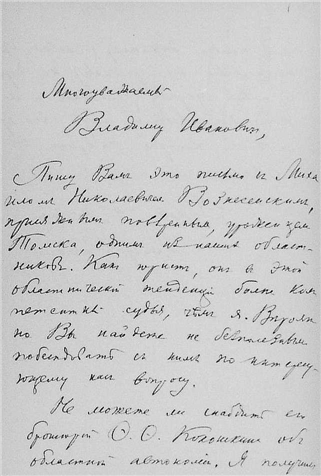 Многоуважаемый
Владимир Иванович,
Пишу Вамъ это письмо съ Миха
иломъ Николаевичемъ Вознесенскимъ,
присяжнымъ повѣреннымъ, уроженцемъ
Томска, однимъ изъ нашихъ област-
никовъ. Какъ юристъ, онъ въ этой
областнической тенденціи болѣе ком
петентный судья, чѣмъ я. Вѣроят
но Вы найдете не безполезнымъ
побесѣдовать съ нимъ по интересу-
ющему насъ вопросу.
Не можете ли снабдить его
брошюрой Ѳ. Ѳ. Кокошкина объ
областной автономіи. Я получилъ